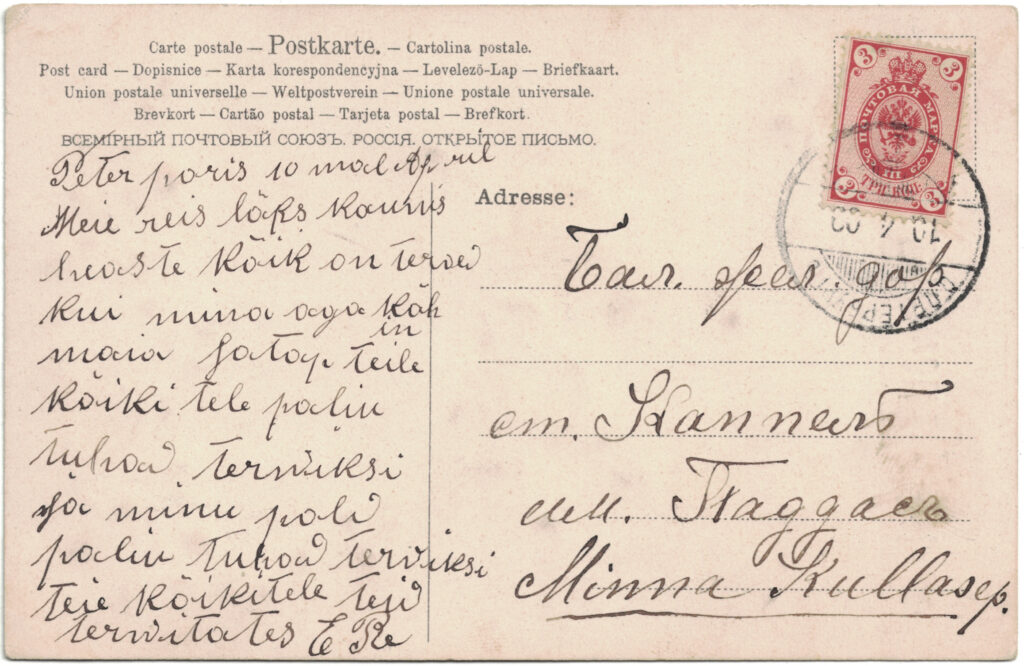 Carte postale — Postkarte. — Cartolina postale.
Post card — Dopisnice — Karta korespondencyjna — Levelező-Lap — Briefkaart.
Union postale universelle — Weltpostverein — Unione postale universale.
Brevkort — Cartão postal — Tarjeta postal — Brefkort.
ВСЕМІРНЫЙ ПОЧТОВЫЙ СОЮЗЪ. РОССІЯ. ОТКРЫТОЕ ПИСЬМО.
Peter poris 10 mal April
Meie reis läks kaunis
heaste kõik on terved
kui mina aga köh
in
maia jatap teile
kõiki tele paliu
tuhad terwiksi
ja minu pold
paliu tuhad terwiksi
teie kõikitele teid
terwitates E Re
3 3
ПОЧТОВАЯ МАРКА
III
ТРИ КОП.
3 3
10. 4. 03
Adresse:
Бал. жел. дор.
ст. Каппель
им. Паддас
Minna Kullasep.